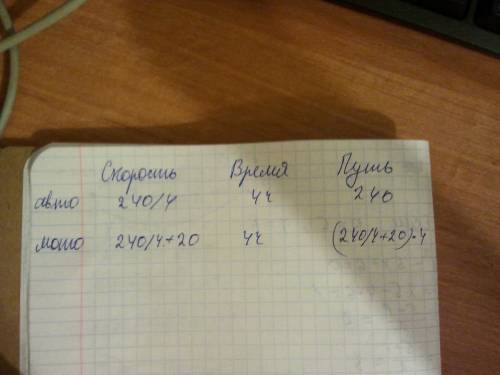 Скорость Время Путь
авто 240/4 4ч 240
мото 240/4+20 4ч (240/4+20)·4